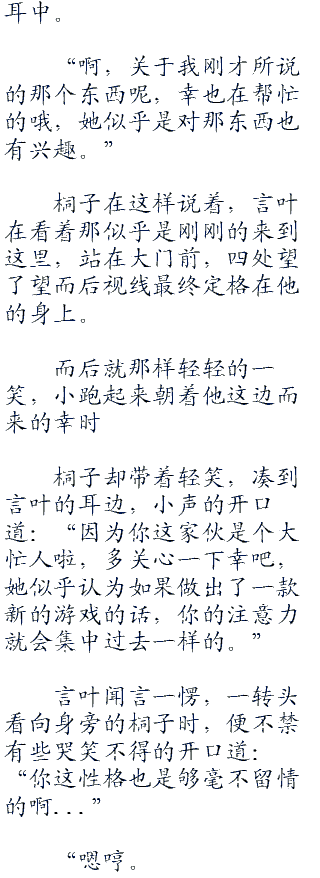 耳中。
“啊，关于我刚才所说
的那个东西呢，幸也在帮忙
的哦，她似乎是对那东西也
有兴趣。”
桐子在这样说着，言叶
在看着那似乎是刚刚的来到
这里，站在大门前，四处望
了望而后视线最终定格在他
的身上。
而后就那样轻轻的一
笑，小跑起来朝着他这边而
来的幸时
桐子却带着轻笑，凑到
言叶的耳边，小声的开口
道：“因为你这家伙是个大
忙人啦，多关心一下幸吧，
她似乎认为如果做出了一款
新的游戏的话，你的注意力
就会集中过去一样的。”
言叶闻言一愣，一转头
看向身旁的桐子时，便不禁
有些哭笑不得的开口道：
“你这性格也是够毫不留情
的啊...”
“嗯哼。